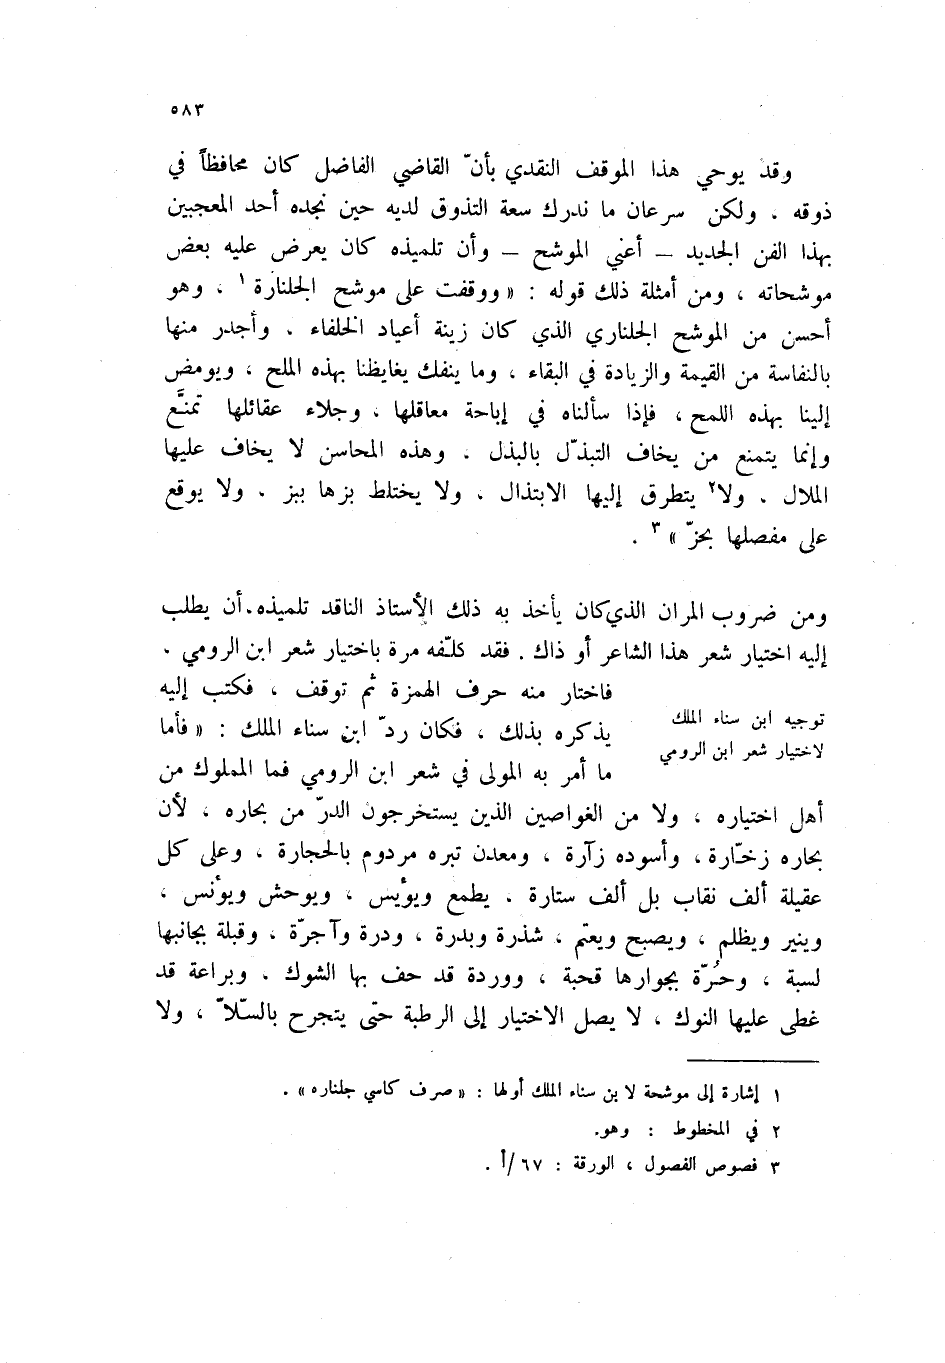 ٥٨٣
وقد يوحي هذا الموقف النقدي بأنّ القاضي الفاضل كان محافظاً في
ذوقه ، ولكن سرعان ما ندرك سعة التذوق لديه حين نجده أحد المعجبين
بهذا الفن الجديد – أعني الموشح – وأن تلميذه كان يعرض عليه بعض
موشحاته ، ومن أمثلة ذلك قوله : « ووقفت على موشح الجلنارة ١ ، وهو
أحسن من الموشح الجلناري الذي كان زينة أعياد الخلفاء . وأجدر منها
بالنفاسة من القيمة والزيادة في البقاء ، وما ينفك يغايظنا بهذه الملح ، ويومض
إلينا بهذه اللمح ، فإذا سألناه في إباحة معاقلها ، وجلاء عقائلها تمنَّع
وإنما يتمنع من يخاف التبذّل بالبذل . وهذه المحاسن لا يخاف عليها
الملال . ولا٢ يتطرق إليها الابتذال ، ولا يختلط بزها ببز . ولا يوقع
على مفصلها بحزّ » ٣ .
ومن ضروب المران الذي كان يأخذ به ذلك الأستاذ الناقد تلميذه.أن يطلب
إليه اختيار شعر هذا الشاعر أو ذاك . فقد كلّفه مرة باختيار شعر ابن الرومي .
توجيه ابن سناء الملك
لاختيار شعر ابن الرومي
فاختار منه حرف الهمزة ثم توقف ، فكتب إليه
يذكره بذلك ، فكان ردّ ابن سناء الملك : « فأما
ما أمر به المولى في شعر ابن الرومي فما المملوك من
أهل اختياره ، ولا من الغواصين الذين يستخرجون الدرّ من بحاره ، لأن
بحاره زخّارة ، وأسوده زآرة ، ومعدن تبره مردوم بالحجارة ، وعلى كل
عقيلة ألف نقاب بل ألف ستارة . يطمع ويؤيس ، ويوحش ويؤنس ،
وينير ويظلم ، ويصبح ويعتم ، شذرة وبدرة ، ودرة وآجرّة ، وقبلة بجانبها
لسبة ، وحُرّة بجوارها قحبة ، ووردة قد حف بها الشوك . وبراعة قد
غطى عليها النوك ، لا يصل الاختيار إلى الرطبة حتى يتجرح بالسّلاّ ، ولا
١ إشارة إلى موشحة لابن سناء الملك أولها : « صرف كاسي جلناره» .
٢ في المخطوط : وهو.
٣ فصوص الفصول ، الورقة : ٦٧/أ .